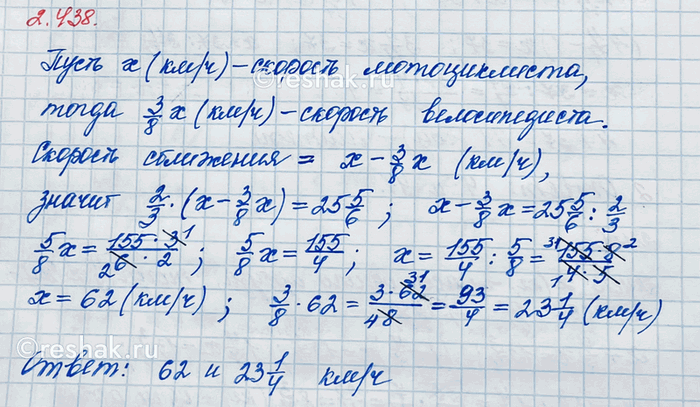 2.438.
Пусть x (км/ч) – скорость мотоциклиста,
тогда 3/8 x (км/ч) – скорость велосипедиста.
Скорость сближения = x – 3/8 x (км/ч),
значит 2/3 · (x – 3/8 x) = 25 5/6 ; x – 3/8 x = 25 5/6 : 2/3
5/8 x = 155 · 3 1 / 2 6 · 2 ; 5/8 x = 155/4 ; x = 155/4 : 5/8 = 31 155 · 8 2 / 1 4 · 5
x = 62 (км/ч) ; 3/8 · 62 = 3 · 62 31 / 4 8 = 93/4 = 23 1/4 (км/ч)
Ответ: 62 и 23 1/4 км/ч
©reshak.ru